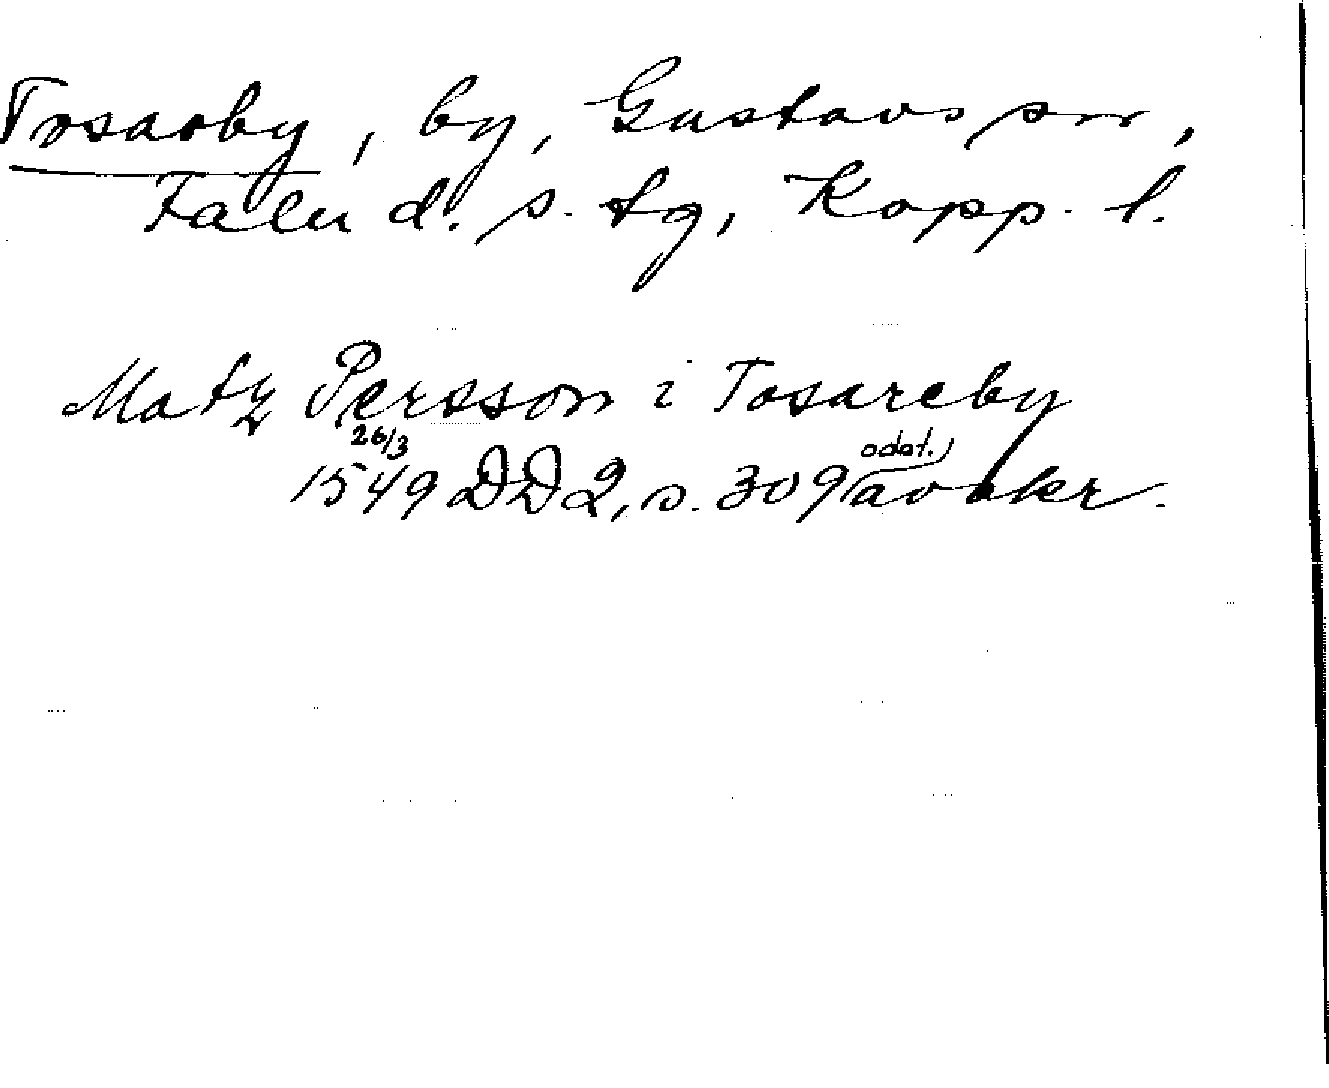 Tosarby, by, Gustavs sn,
Falu d. s. tg, Kopp. l.
Matz Persson i Tosareby
26/3 odat.
1549 DD 2, s. 309 avskr.